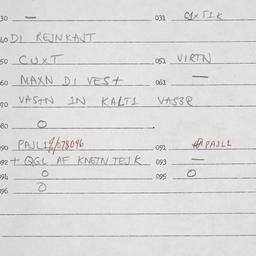 030 — 031
040 DI REINKANT
050 CUXT 051 VIRTN
060 MAXN DI VEST 061 —
070 VASTN IN KALTI VASBR
080 O
090 PAJL1 078096 091 PAJLL
092 + QGL AF KNETN TEJK 093 —
094 O 095 O
096 O